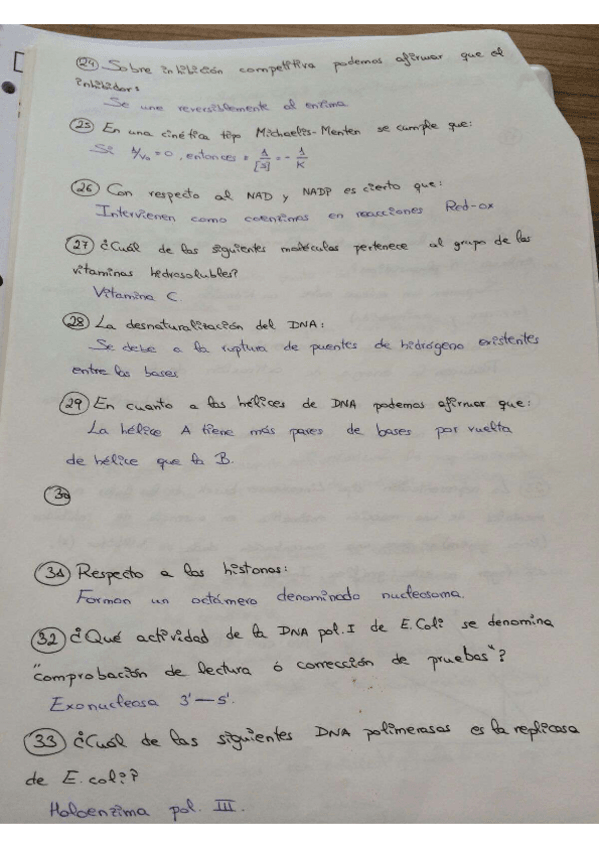 24 Sobre inhibición competitiva podemos afirmar que el
inhibidor:
Se une reversiblemente al enzima.
25 En una cinética tipo Michaelis-Menten se cumple que:
Si 1/V₀ = 0, entonces = 1/[S] = - 1/K
26 Con respecto al NAD y NADP es cierto que:
Intervienen como coenzimas en reacciones Red-ox
27 ¿Cuál de las siguientes moléculas pertenece al grupo de las
vitaminas hidrosolubles?
Vitamina C.
28 La desnaturalización del DNA:
Se debe a la ruptura de puentes de hidrógeno existentes
entre las bases
29 En cuanto a las hélices de DNA podemos afirmar que:
La hélice A tiene más pares de bases por vuelta
de hélice que la B.
30
31 Respecto a las histonas:
Forman un octámero denominado nucleosoma.
32 ¿Qué actividad de la DNA pol. I de E. Coli se denomina
"comprobación de lectura ó corrección de pruebas"?
Exonucleasa 3'—5'.
33 ¿Cuál de las siguientes DNA polimerasas es la replicasa
de E. coli?
Holoenzima pol. III.